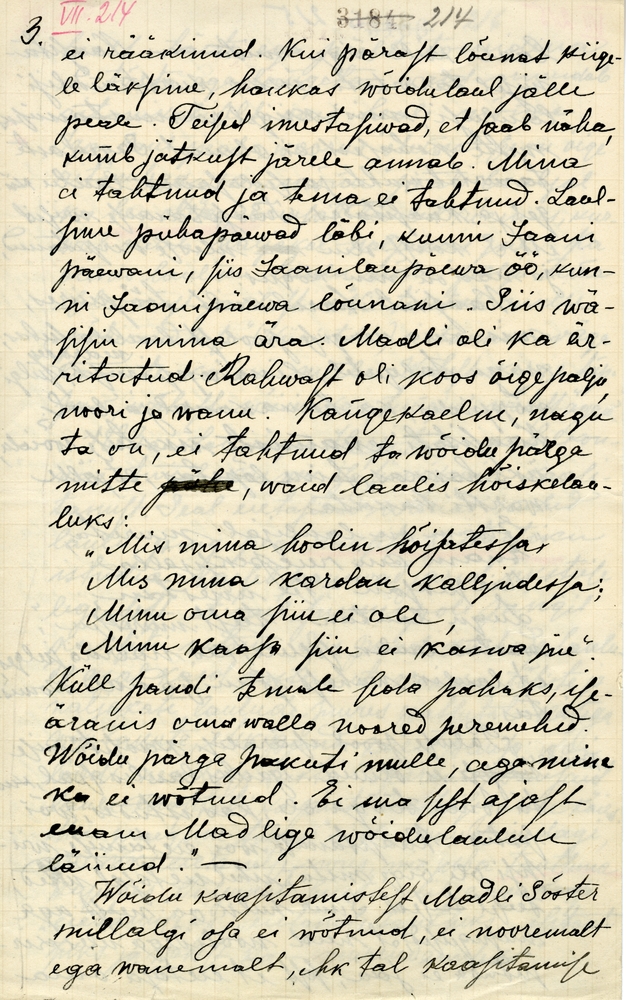 VII. 214
3184 214
3.
ei rääkinud. Kui pärast lõunat kiige-
le läksime, hakkas wõidulaul jälle
peale. Teised imestasiwad, et saab näha,
kumb jätkust järele annab. Mina
ei tahtnud ja tema ei tahtnud. Laul-
sime pühapäewad läbi, kunni Jaani
päewani, siis Jaanilaupäewa öö, kun-
ni Jaanipäewa lõunani. Siis wä-
sisin mina ära. Madli oli ka är-
ritatud. Rahwast oli koos õige palju,
noori ja wanu. Kangekaelne, nagu
ta on, ei tahtnud ta wõidu pärga
mitte pähe, waid laulis hõiskelau-
luks:
„Mis mina hoolin hõisatessa,
Mis mina kardan kalljudessa;
Minu oma siin ei ole,
Minu kaasa siin ei kaswa jne“.
Küll pandi temale seda pahaks, ise-
äranis oma walla noored peremehed.
Wõidu pärga pakuti mulle, aga mina
ka ei wõtnud. Ei ma sest ajast
enam Madlige wõidulaulule
läinud.“ —
Wõidu kaasitamistest Madli Sõster
millalgi osa ei wõtnud, ei nooremalt
ega wanemalt, ehk tal kaasitamise